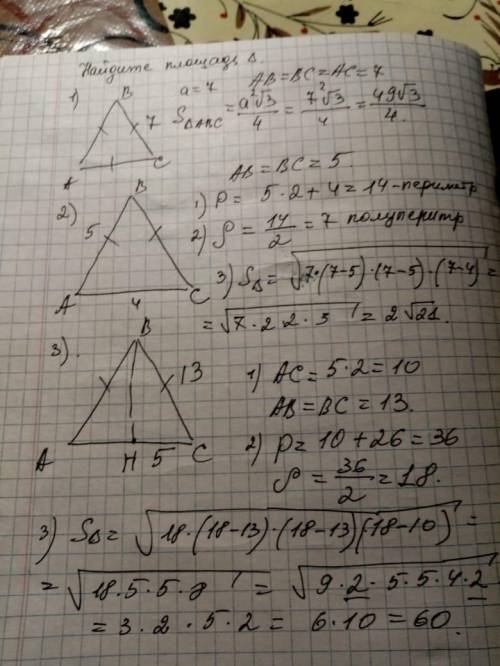 Найдите площадь Δ.
1) B a = 7 AB = BC = AC = 7
7 S ΔABC = a²√3/4 = 7²√3/4 = 49√3/4.
A C
AB = BC = 5.
2) B 1) P = 5·2 + 4 = 14 - периметр
5 2) p = 14/2 = 7 полуперитр
3) SΔ = √7·(7-5)·(7-5)·(7-4) =
A 4 C = √7·2·2·3 = 2√21.
3). B
13 1) AC = 5·2 = 10
AB = BC = 13.
A H 5 C 2) P = 10 + 26 = 36
p = 36/2 = 18.
3) SΔ = √18·(18-13)·(18-13)(18-10) =
= √18·5·5·8 = √9·2·5·5·4·2
= 3·2·5·2 = 6·10 = 60.